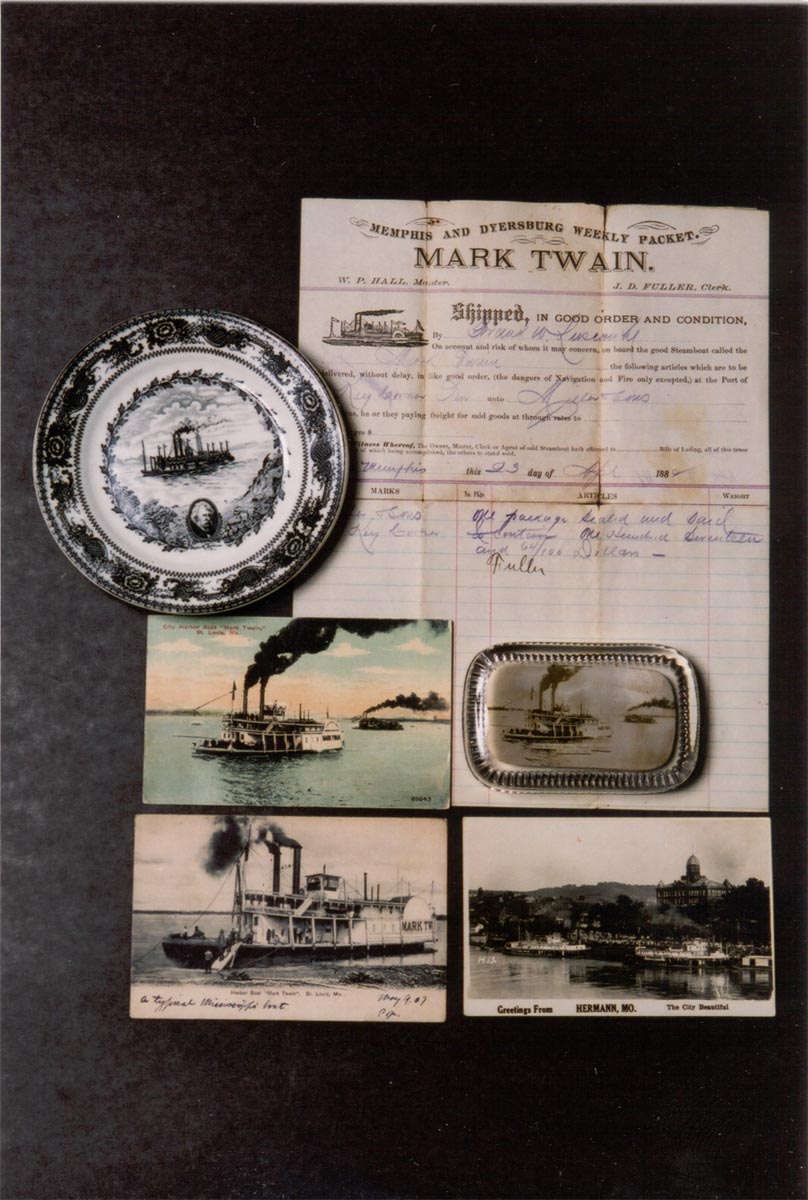 MEMPHIS AND DYERSBURG WEEKLY PACKET.
MARK TWAIN.
W. P. HALL, Master.
J. D. FULLER, Clerk.
Shipped, IN GOOD ORDER AND CONDITION,
By Frank W.
On account and risk of whom it may concern, on board the good Steamboat called the
Mark Twain the following articles which are to be
delivered, without delay, in like good order, (the dangers of Navigation and Fire only excepted,) at the Port of
Key Corner unto Sons
he or they paying freight for said goods at through rates to
$
Witness Whereof, The Owner, Master, Clerk or Agent of said Steamboat hath affirmed to Bills of Lading, all of this tenor
of which being accomplished, the others to stand void.
Memphis this 23 day of Apl 188
MARKS
ARTICLES
WEIGHT
Sons One package Sealed and Said
Key Corner to Contain One Hundred Seventeen
and 60/100 Dollars
Fuller
City Harbor Boat "Mark Twain,"
St. Louis, Mo.
MARK TWAIN
MARK TW
Harbor Boat "Mark Twain", St. Louis, Mo.
A typical Mississippi boat
May 9.07
H12
Greetings From HERMANN, MO. The City Beautiful